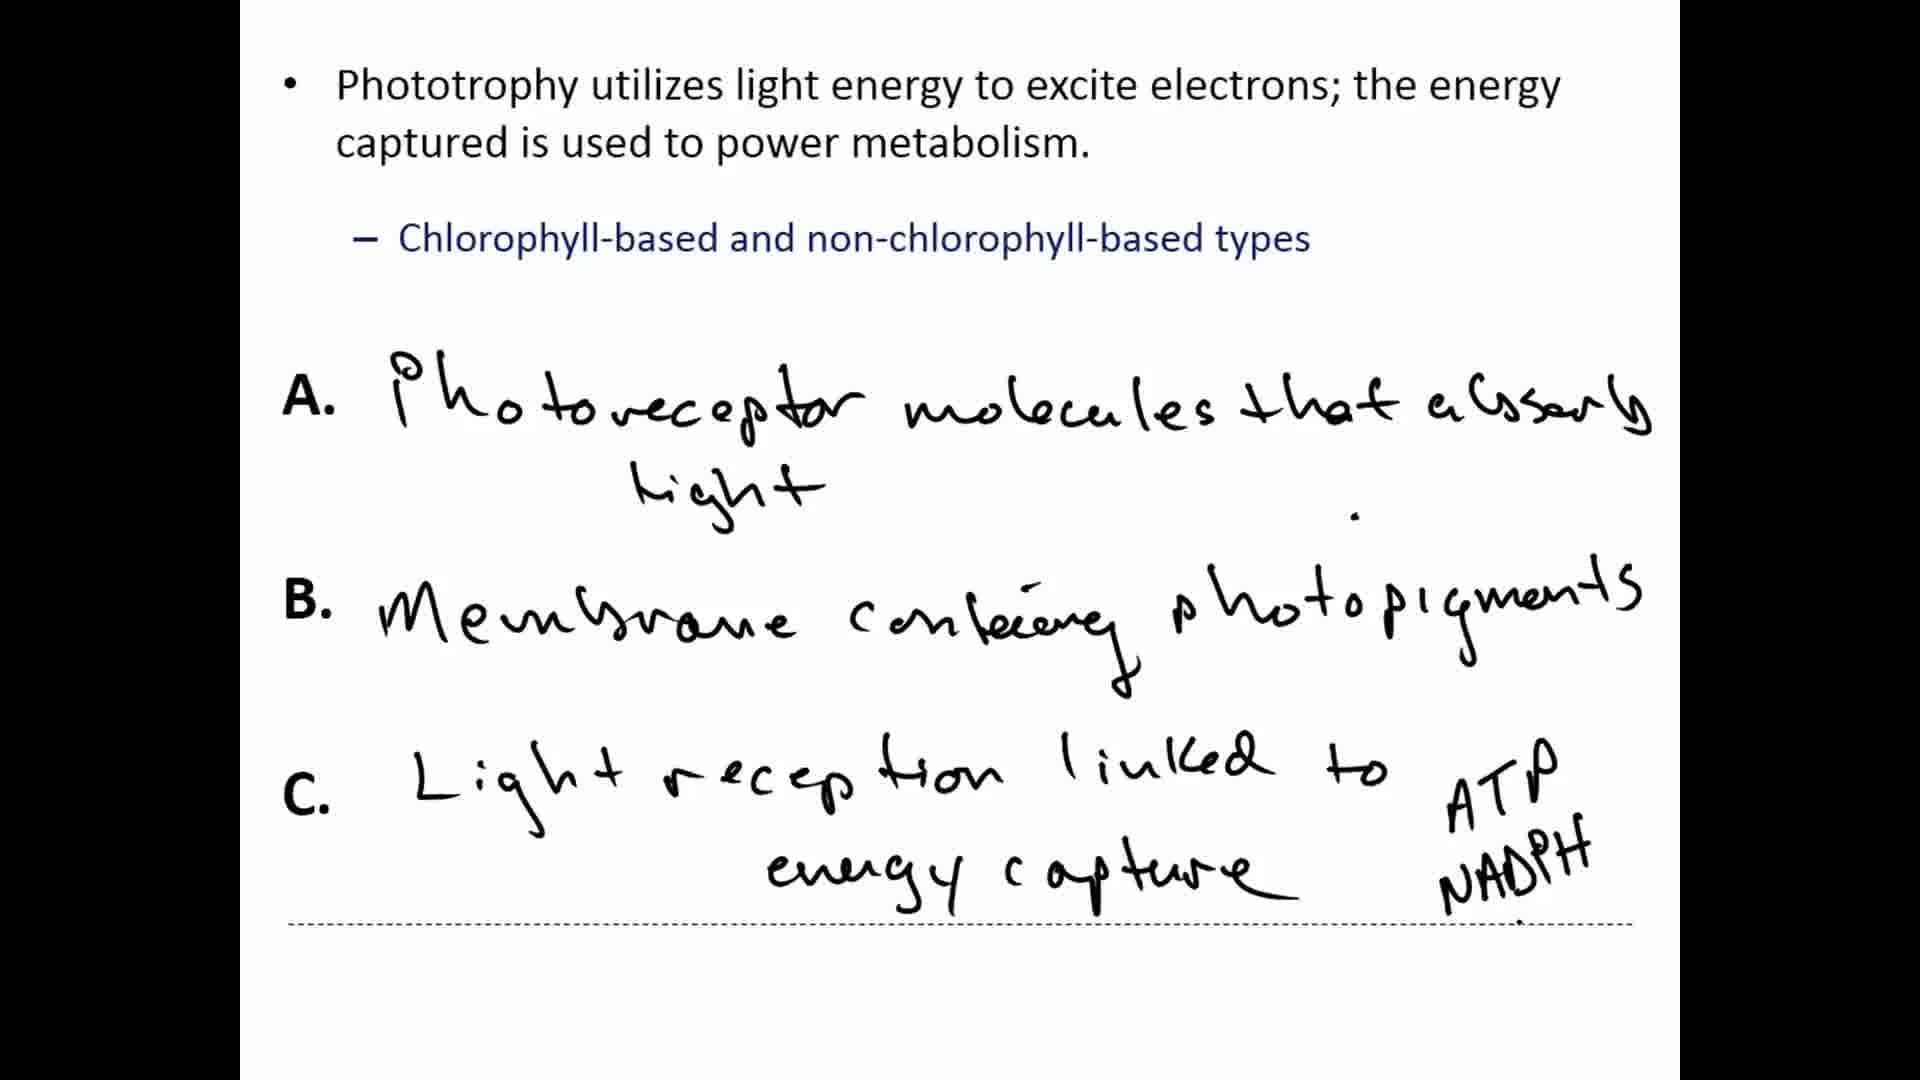 • Phototrophy utilizes light energy to excite electrons; the energy
captured is used to power metabolism.
– Chlorophyll-based and non-chlorophyll-based types
A. Photoreceptor molecules that absorb
light
B. Membrane containing photopigments
C. Light reception linked to ATP
energy capture NADPH